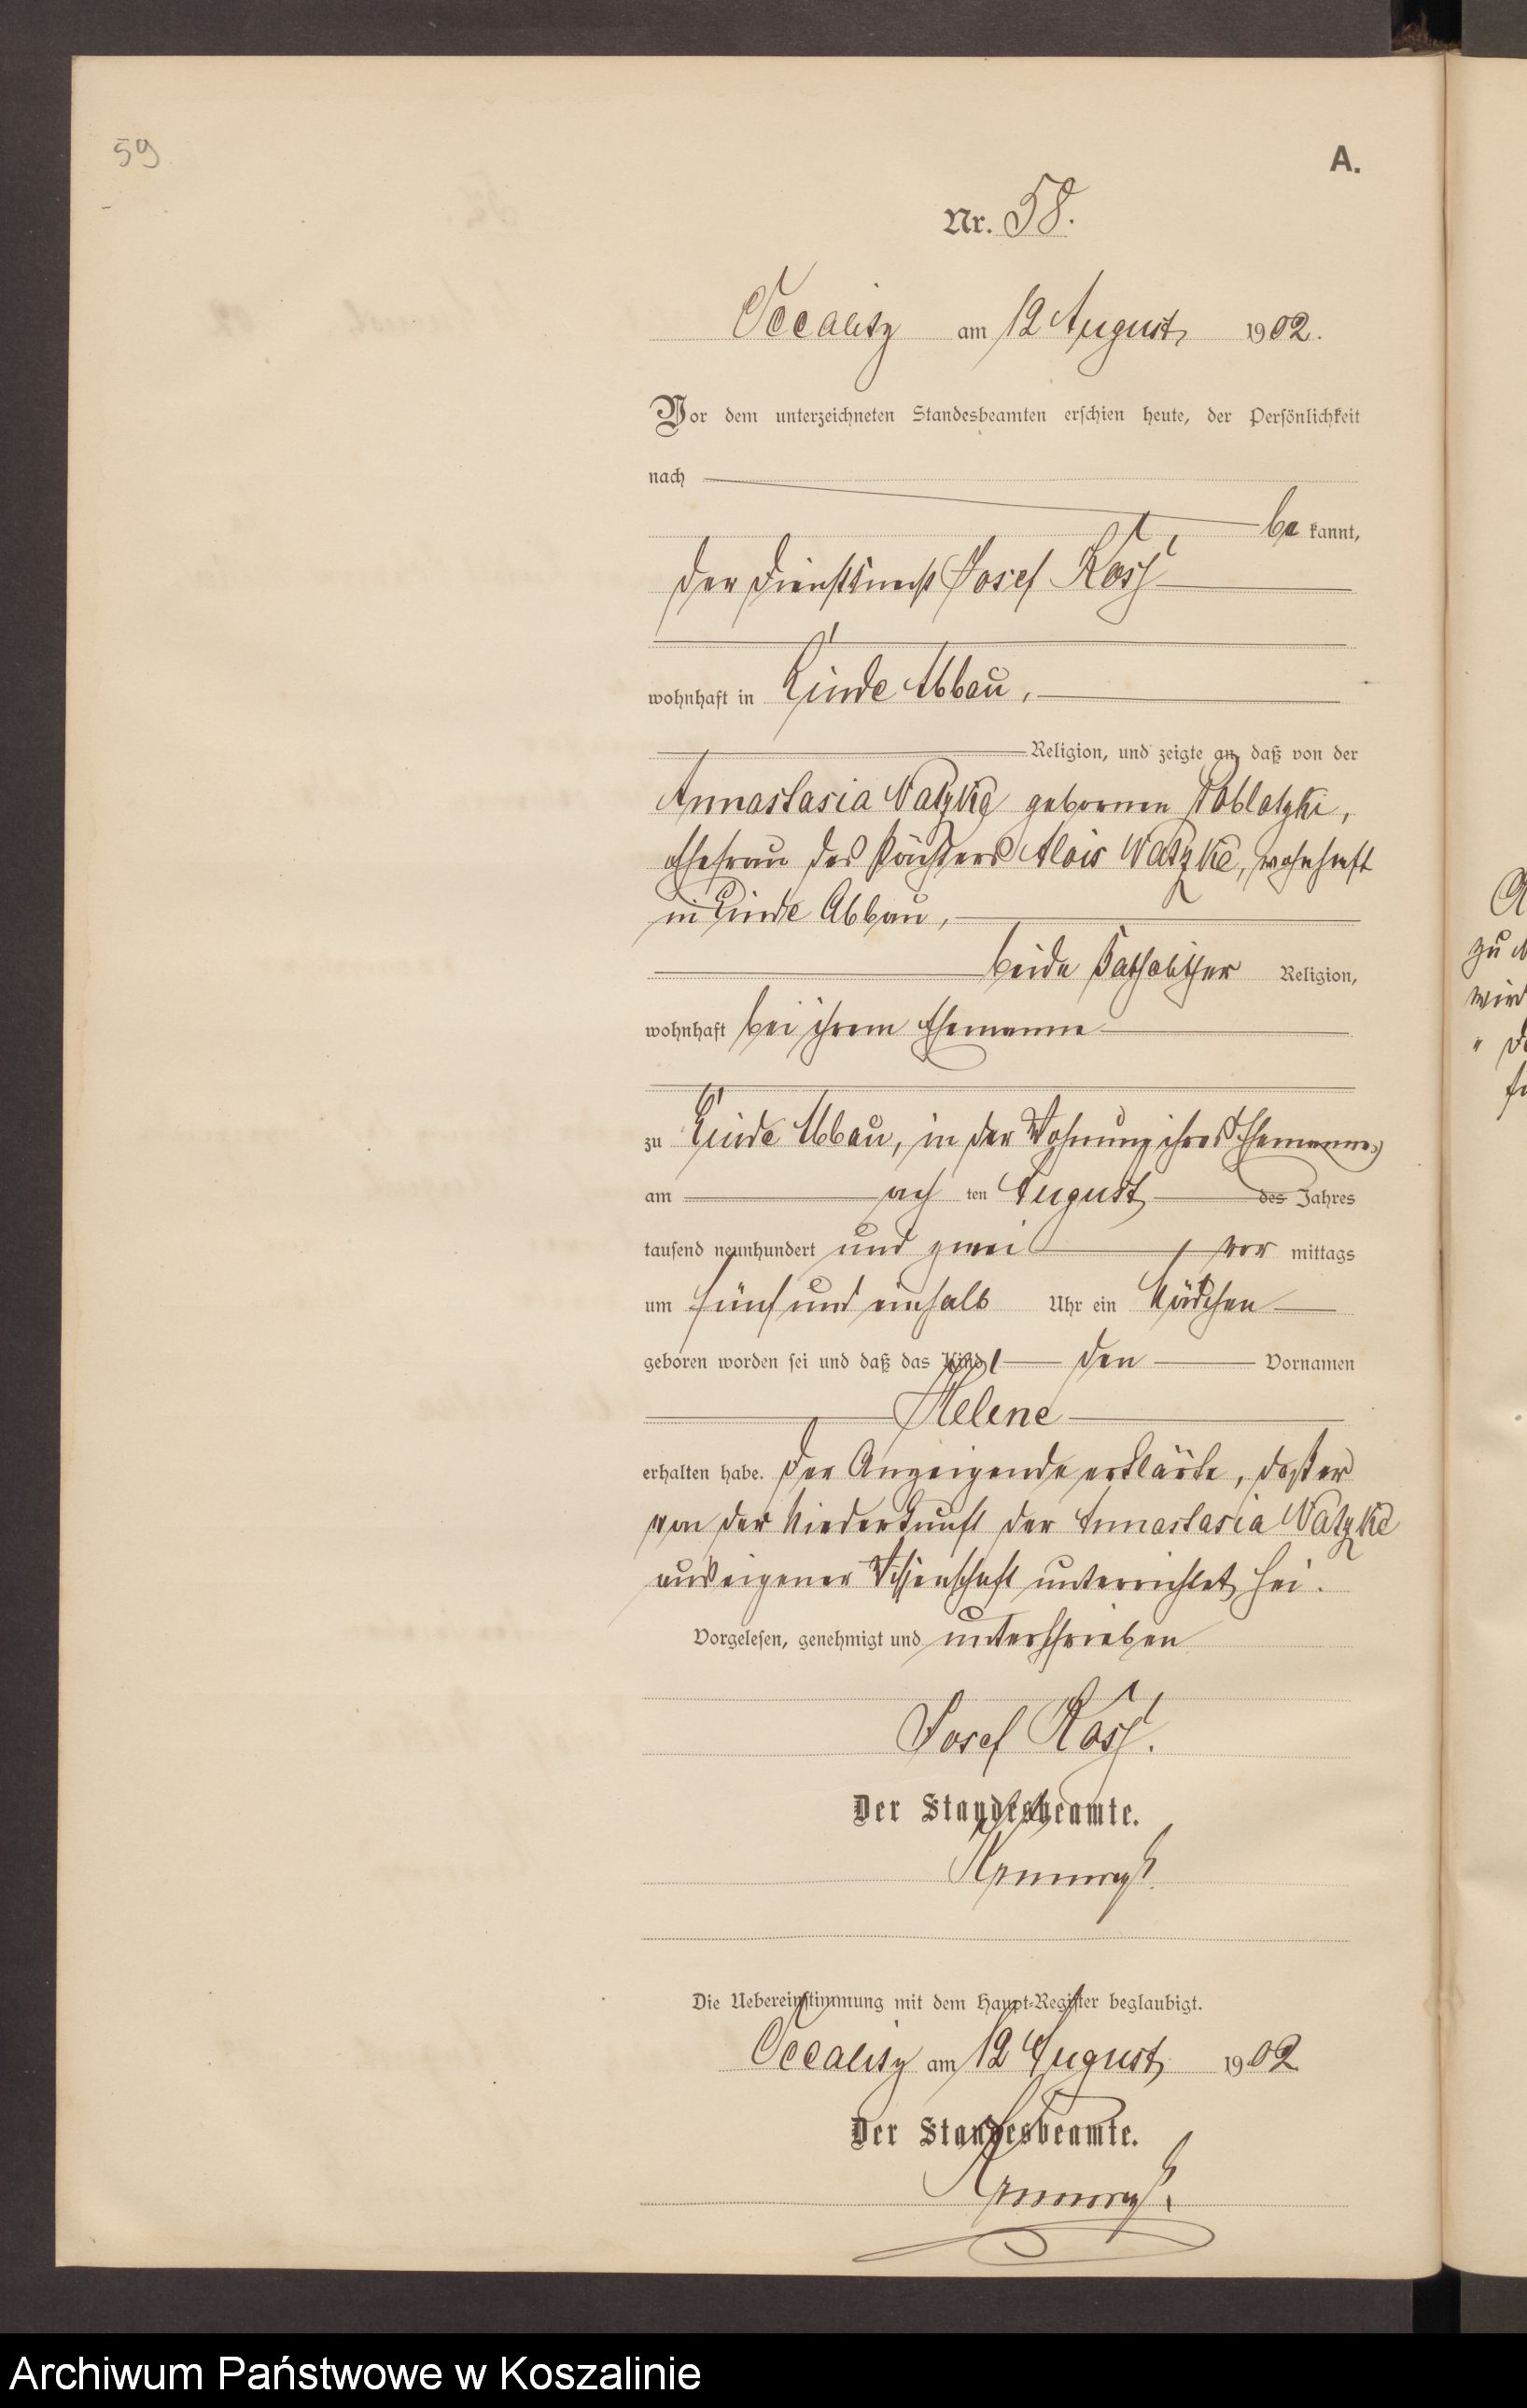 59
A.
Nr. 58.
Occalitz am 12 August 1902.
Vor dem unterzeichneten Standesbeamten erschien heute, der Persönlichkeit
nach
be kannt,
der Dienstknecht Josef
wohnhaft in Linde Abbau,
Religion, und zeigte an, daß von der
Annastasia Natzke gebornen Pablotzki,
Ehefrau des Pächters Alois Natzke, wohnhaft
in Linde Abbau,
beide katholischer Religion,
wohnhaft bei ihrem Ehemanne
zu Linde Abbau, in der Wohnung ihres Ehemannes
am ach ten August des Jahres
tausend neunhundert und zwei vor mittags
um fünf und einhalb Uhr ein Mädchen
geboren worden sei und daß das Kind den Vornamen
Helene
erhalten habe. Der Anzeigende erklärte, daß er
von der Niederkunft der Annastasia Natzke
aus eigener Wissenschaft unterrichtet sei.
Vorgelesen, genehmigt und unterschrieben
Josef
Der Standesbeamte.
Die Uebereinstimmung mit dem Haupt-Register beglaubigt.
Occalitz am 12 August 1902
Der Standesbeamte.
zu
wird
Archiwum Państwowe w Koszalinie